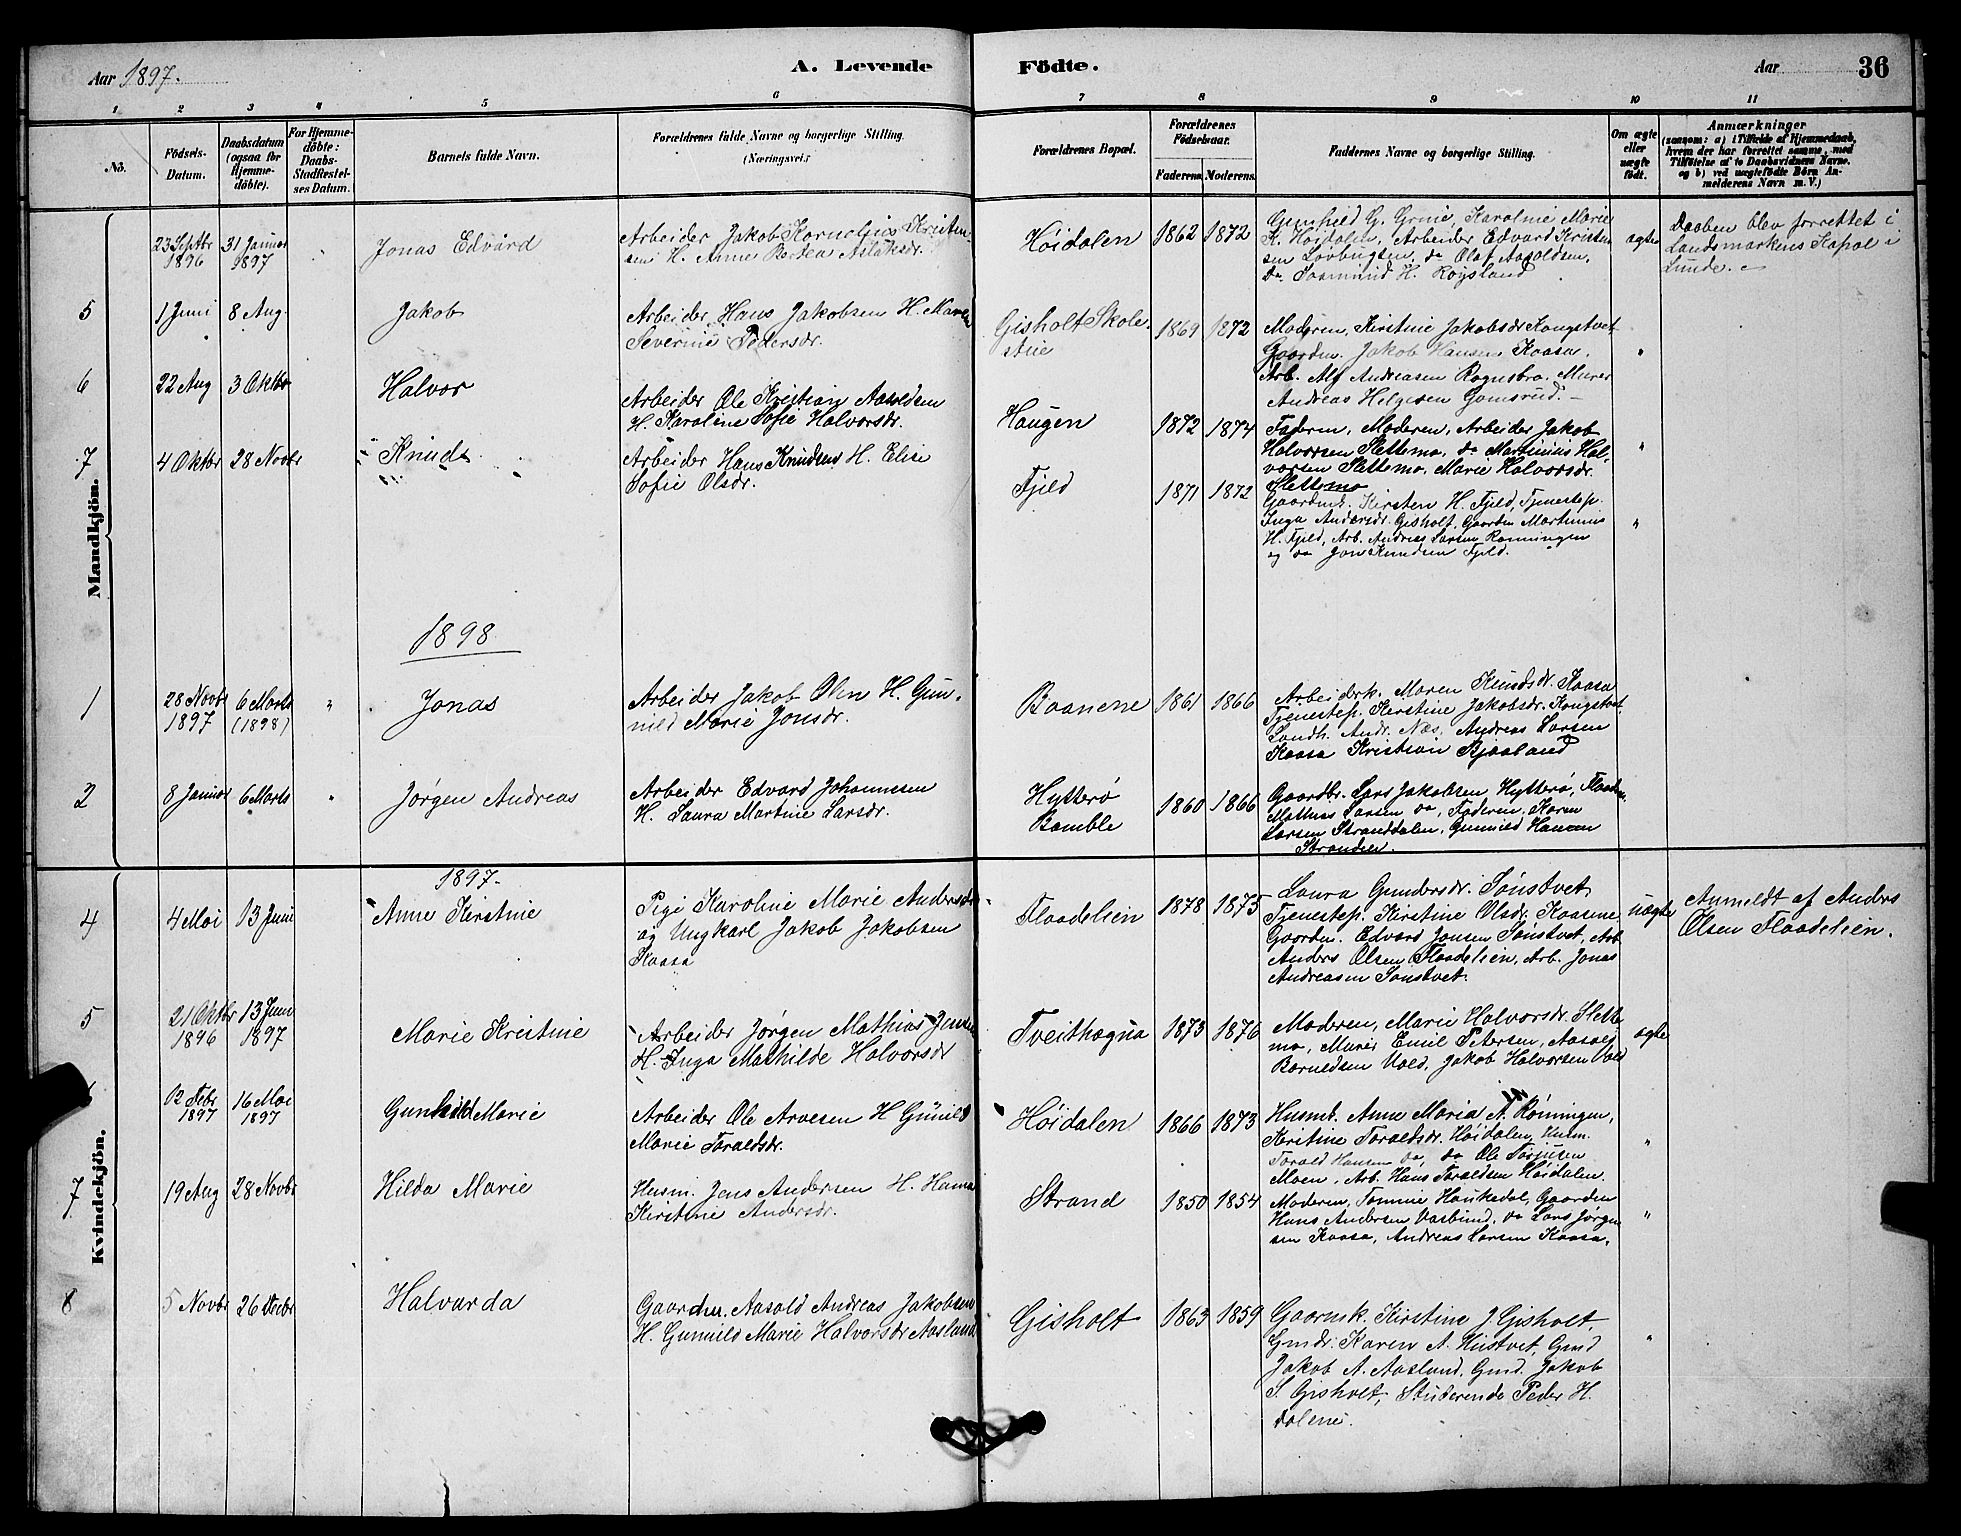 Aar 1897.
A. Levende
Födte.
Aar
36
1
2
3
4
5
6
7
8
9
10
11
No.
Födsels-
Datum.
Daabsdatum
(ogsaa for
Hjemme-
döbte).
For Hjemme-
döbte:
Daabs-
Stadfæstel-
ses Datum.
Barnets fulde Navn.
Forældrenes fulde Navne og borgerlige Stilling.
(Næringsvei.)
Forældrenes Bopæl.
Forældrenes
Födselsaar.
Faderens.
Moderens.
Faddernes Navne og borgerlige Stilling.
Om ægte
eller
uægte
födt.
Anmærkninger
(saasom: a) i Tilfælde af Hjemmedaab,
hvem der har forrettet samme, med
Tilföielse af to Daabsvidners Navne,
og b) ved uægtefödte Börn An-
melderens Navn m. V.)
Mandkjön.
23 Septbr
1896
31 Januar
1897
"
Jonas Edvard
Arbeider Jakob Kornelius Kristen-
sen H. Anne Bertea Aslaksdr.
Høidalen
1862
1872
Gunhild G. Grnie, Karoline Marie
K. Høidalen, Arbeider Edvard Kristen
sen Lovbugsen, do Olaf Aasoldsen,
Do H. Røysland
ægte
Daaben blev forrettet i
Landsmarkens Kapel i
Lunde.
5
1 Juni
8 Aug.
Jakob
Arbeider Hans Jakobsen H. Maren
Severine Pedersdr.
Gisholt Skole
stue
1869
1872
Moderen, Kirstine Jakobsdr Kongstvet
Gaardm. Jakob Hansen Kaasa.
Arb. Alf Andreasen Rognsbro. Murer
Andreas Helgesen Gomsrud.
"
6
22 Aug
3 Oktbr
Halvor
Arbeider Ole Kristian Aasoldsen
H. Karoline Sofie Halvorsdr.
Haugen
1872
1874
Faderen, Moderen, Arbeider Jakob
Halvorsen Slettemo, do Martinius Hal-
vorsen Slettemo, Marie Halvorsdr.
Slettemo
"
7
4 Oktbr
28 Novbr
Knud
Arbeider Hans Knudsen H. Elise
Sofie Olsdr.
Fjeld
1871
1872
Gaardmk. Kirsten H. Fjeld, Tjenestep.
Inga Andersdr. Gisholt, Gaardm Martinius
H. Fjeld, Arb. Andreas Larsen Rønningen
og do Jon Knudsen Fjeld.
"
1898
1
28 Novbr
1897
6 Marts
(1898)
"
Jonas
Arbeider Jakob Olsen H. Gun-
nild Marie Jonsdr.
Baanene
1861
1866
Arbeiderk. Maren Knudsdr. Kaasa
Tjenestep. Kirstine Jakobsdr. Kongstvet
Landh. Andr. Næs, Andreas Larsen
Kaasa Kristian Bjaaland
2
8 Januar
6 Marts
"
Jørgen Andreas
Arbeider Edvard Johannesen
H. Laura Martine Larsdr.
Hytterø
Bamble
1860
1866
Gaardbr. Lars Jakobsen Hytterø,
Mathias Larsen do, Faderen, Karen
Larsen Stranddalen, Gunnild Hansen
Stranden.
Kvindekjön.
1897.
4
4 Mai
13 Juni
Anne Kirstine
Pige Karoline Marie Andersdr
og Ungkarl Jakob Jakobsen
Kaasa
Flaadelien
1878
1875
Laura Gundersdr. Sønstvet
Tjenestep. Kirstine Olsdr. Kaasene
Gaardm. Edvard Jonsen Sønstvet, Arb.
Anders Olsen Flaadelien, Arb. Jonas
Andreasen Sønstvet.
uægte
Anmeldt af Anders
Olsen Flaadelien.
5
21 Oktbr
1896
13 Juni
1897
Marie Kristine
Arbeider Jørgen Mathias Jensen
H. Inga Mathilde Halvorsdr
Tveithægna
1873
1876
Moderen, Marie Halvorsdr. Slette
mo, Murer Emil Petersen, Aasold
Baruldsen Vold, Jakob Halvorsen Vold
ægte
12 Febr
1897
16 Mai
1897
Gunhild Marie
Arbeider Ole Arvesen H Gunild
Marie Taraldsdr.
Høidalen
1866
1873
Husmk. Anne Maria A. Rønningen,
Kirstine Taraldsdr. Høidalen, Husm.
Tarald Hansen do, do Ole Torjusen
Moen, Arb. Hans Taraldsen Høidalen.
"
7
19 Aug
28 Novbr
Hilda Marie
Husm. Jens Andersen H. Hanna
Kirstine Andersdr.
Strand
1850
1854
Moderen, Tomine Haukedal, Gaardm
Hans Andersen Vasbund, do Lars Jørgen
sen Kaasa, Andreas Larsen Kaasa.
"
8
5 Novbr
26 Decbr
Halvarda
Gaardm. Aasold Andreas Jakobsen
H. Gunnild Marie Halvorsdr Aasland
Gisholt
1863
1859
Gaarmk. Kirstine J. Gisholt,
Gmdr. Karen A. Hustvet, Gmd
Jakob A. Aasland, Gmd. Jakob
S. Gisholt, Studerende Peder H.
Dalene.
"